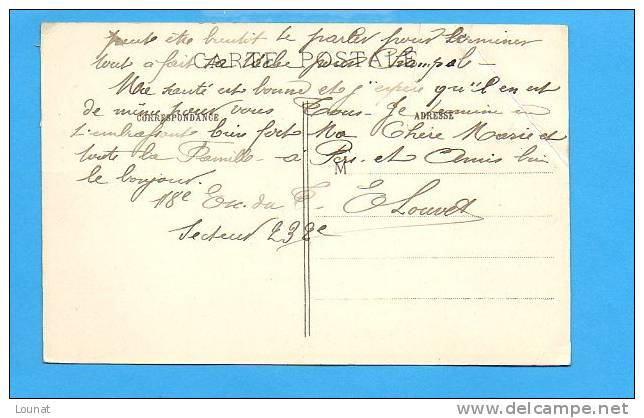 peut être bientôt te parler pour terminer
CARTE POSTALE
tout a fait ta
Ma santé est bonne et j'espère qu'il en est
de même pour vous Tous. Je termine en
CORRESPONDANCE
ADRESSE
t'embrassant bien fort Ma Chère Marie et
toute la Famille - a Pers. et Amis bien
M
le bonjour.
18e Esc. du T. E Louvet
Secteur 232e
Lounat
www.delcampe.net